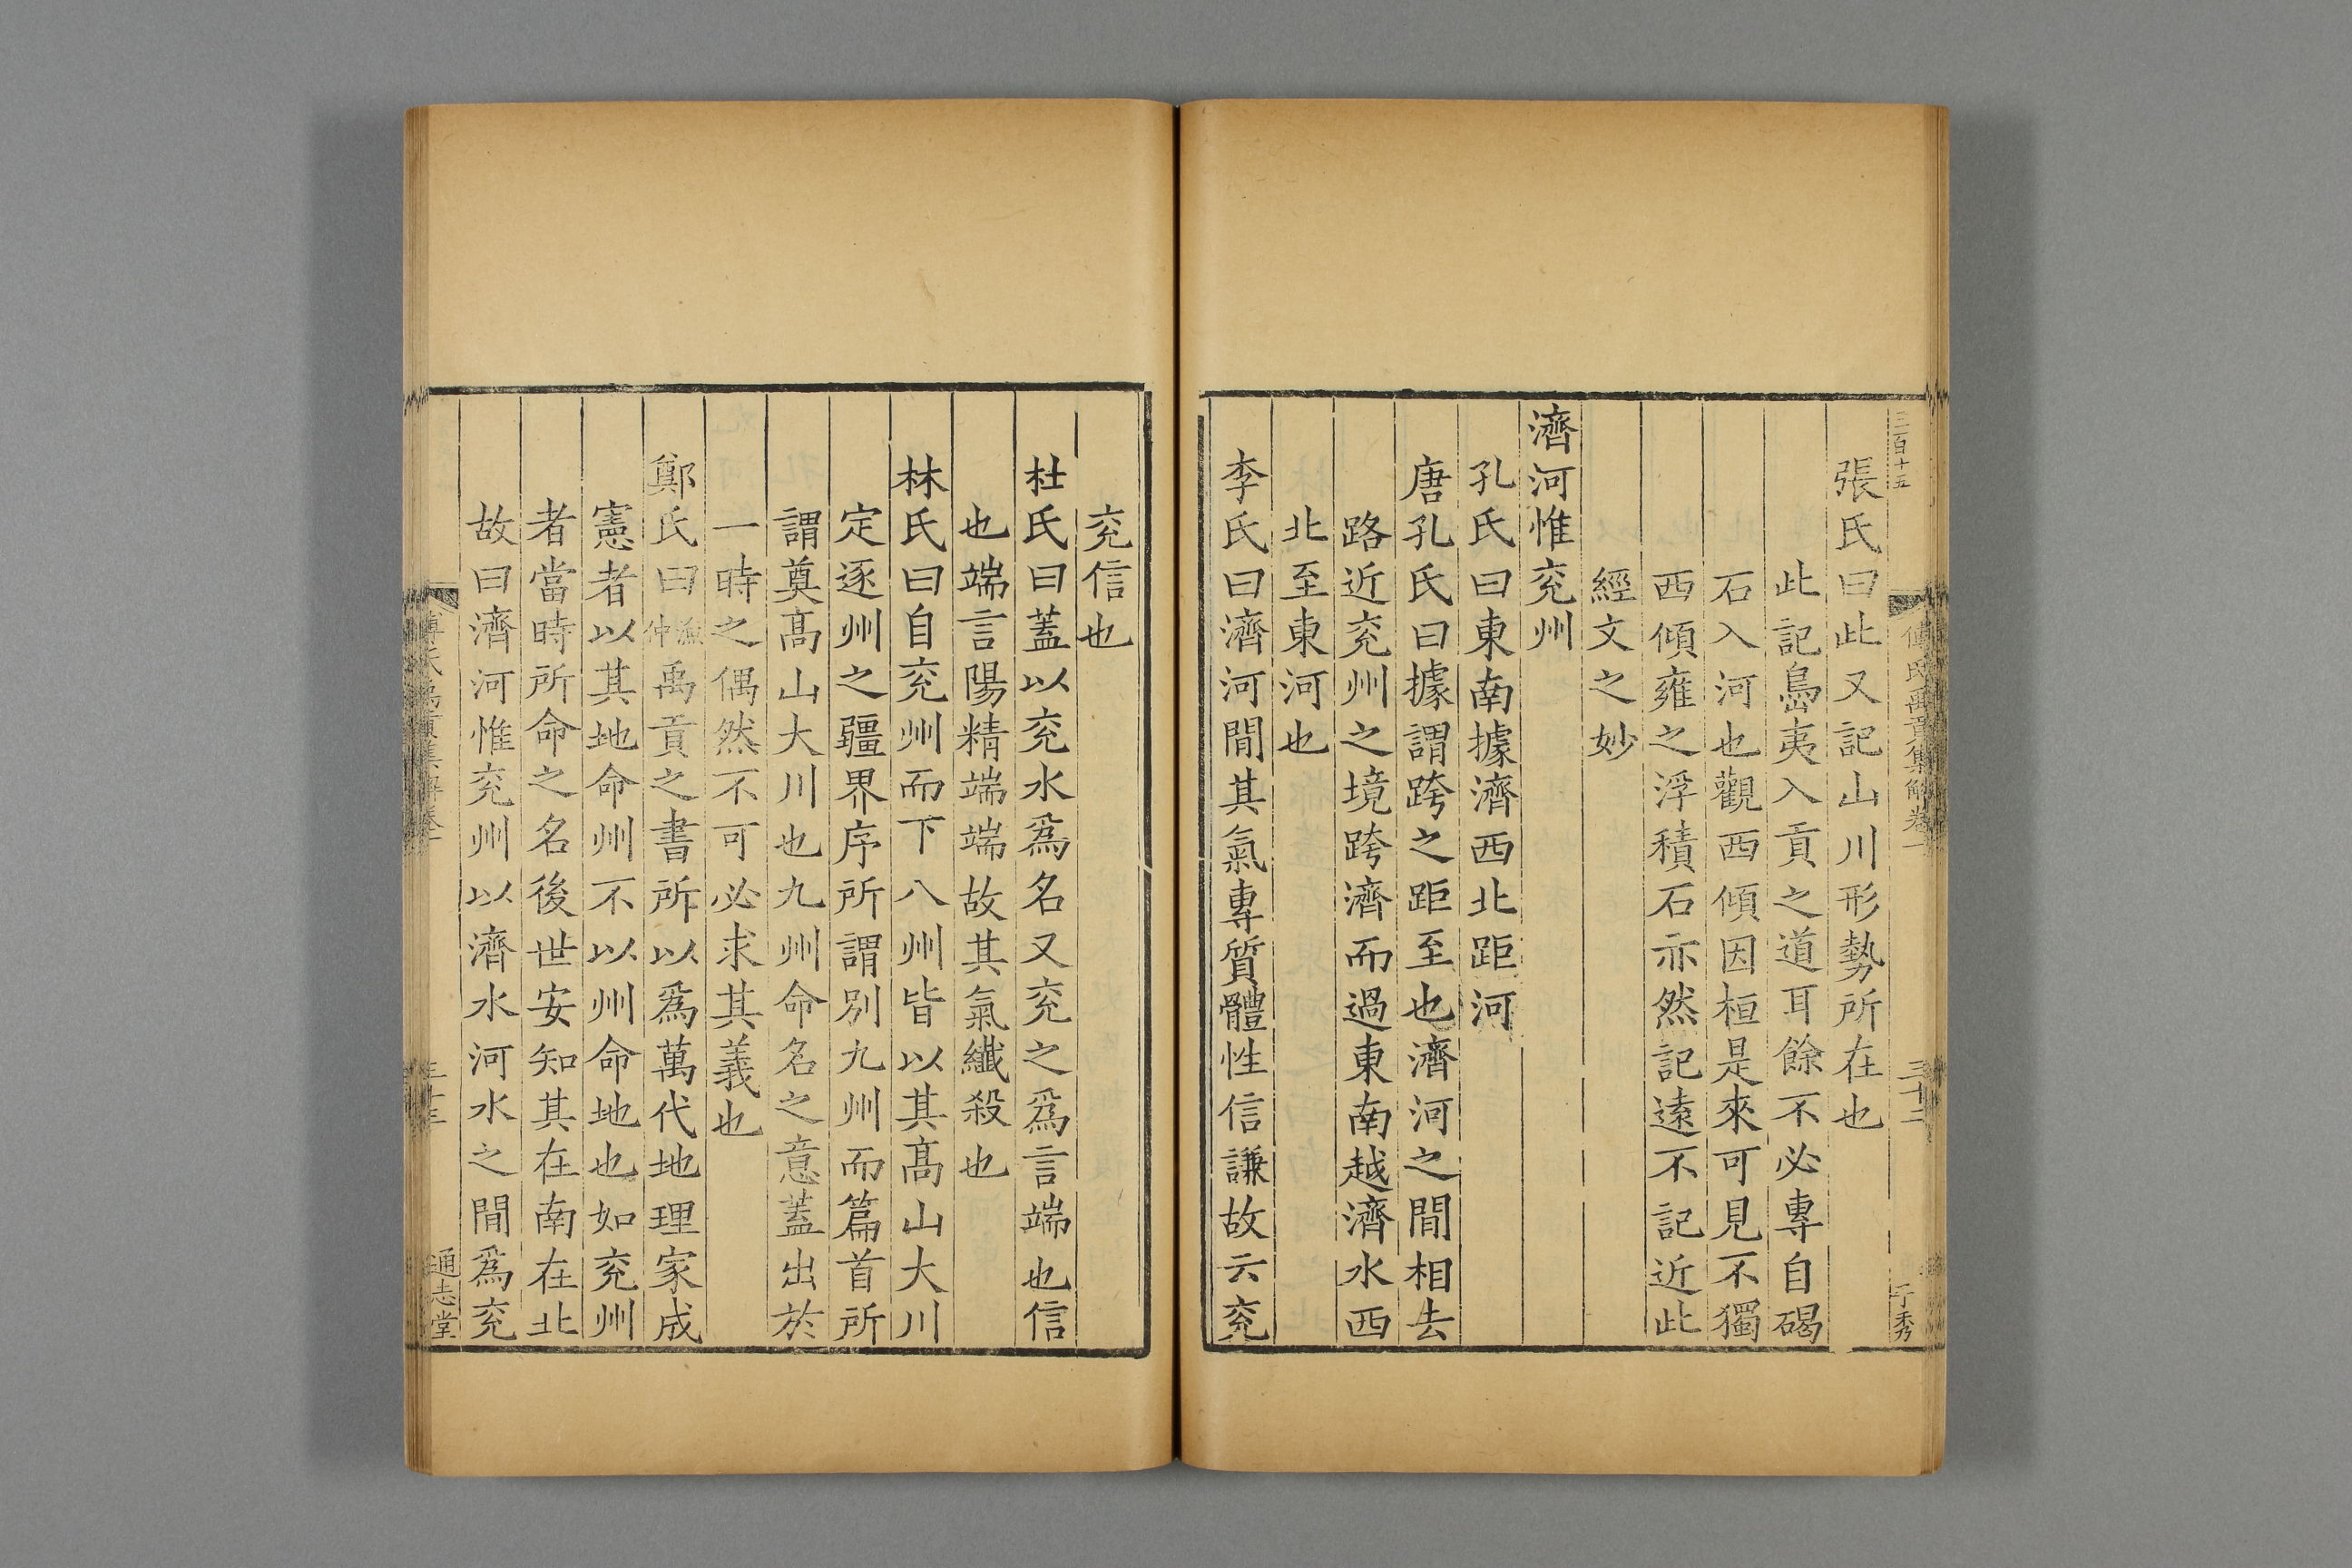 三百十五
傅氏禹貢集解卷一
三十二
子秀
張氏曰此又記山川形勢所在也
此記島夷入貢之道耳餘不必專自碣
石入河也觀西傾因桓是來可見不獨
西傾雍之浮積石亦然記遠不記近此
經文之妙
濟河惟兖州
孔氏曰東南據濟西北距河
唐孔氏曰據謂跨之距至也濟河之間相去
路近兖州之境跨濟而過東南越濟水西
北至東河也
李氏曰濟河間其氣專質體性信謙故云兖
兖信也
杜氏曰蓋以兖水爲名又兖之爲言端也信
也端言陽精端端故其氣纖殺也
林氏曰自兖州而下八州皆以其髙山大川
定逐州之疆界序所謂别九州而篇首所
謂奠髙山大川也九州命名之意蓋出於
一時之偶然不可必求其義也
鄭氏曰漁仲禹貢之書所以爲萬代地理家成
憲者以其地命州不以州命地也如兖州
者當時所命之名後世安知其在南在北
故曰濟河惟兖州以濟水河水之間爲兖
傅氏禹貢集解卷一
三十三
通志堂